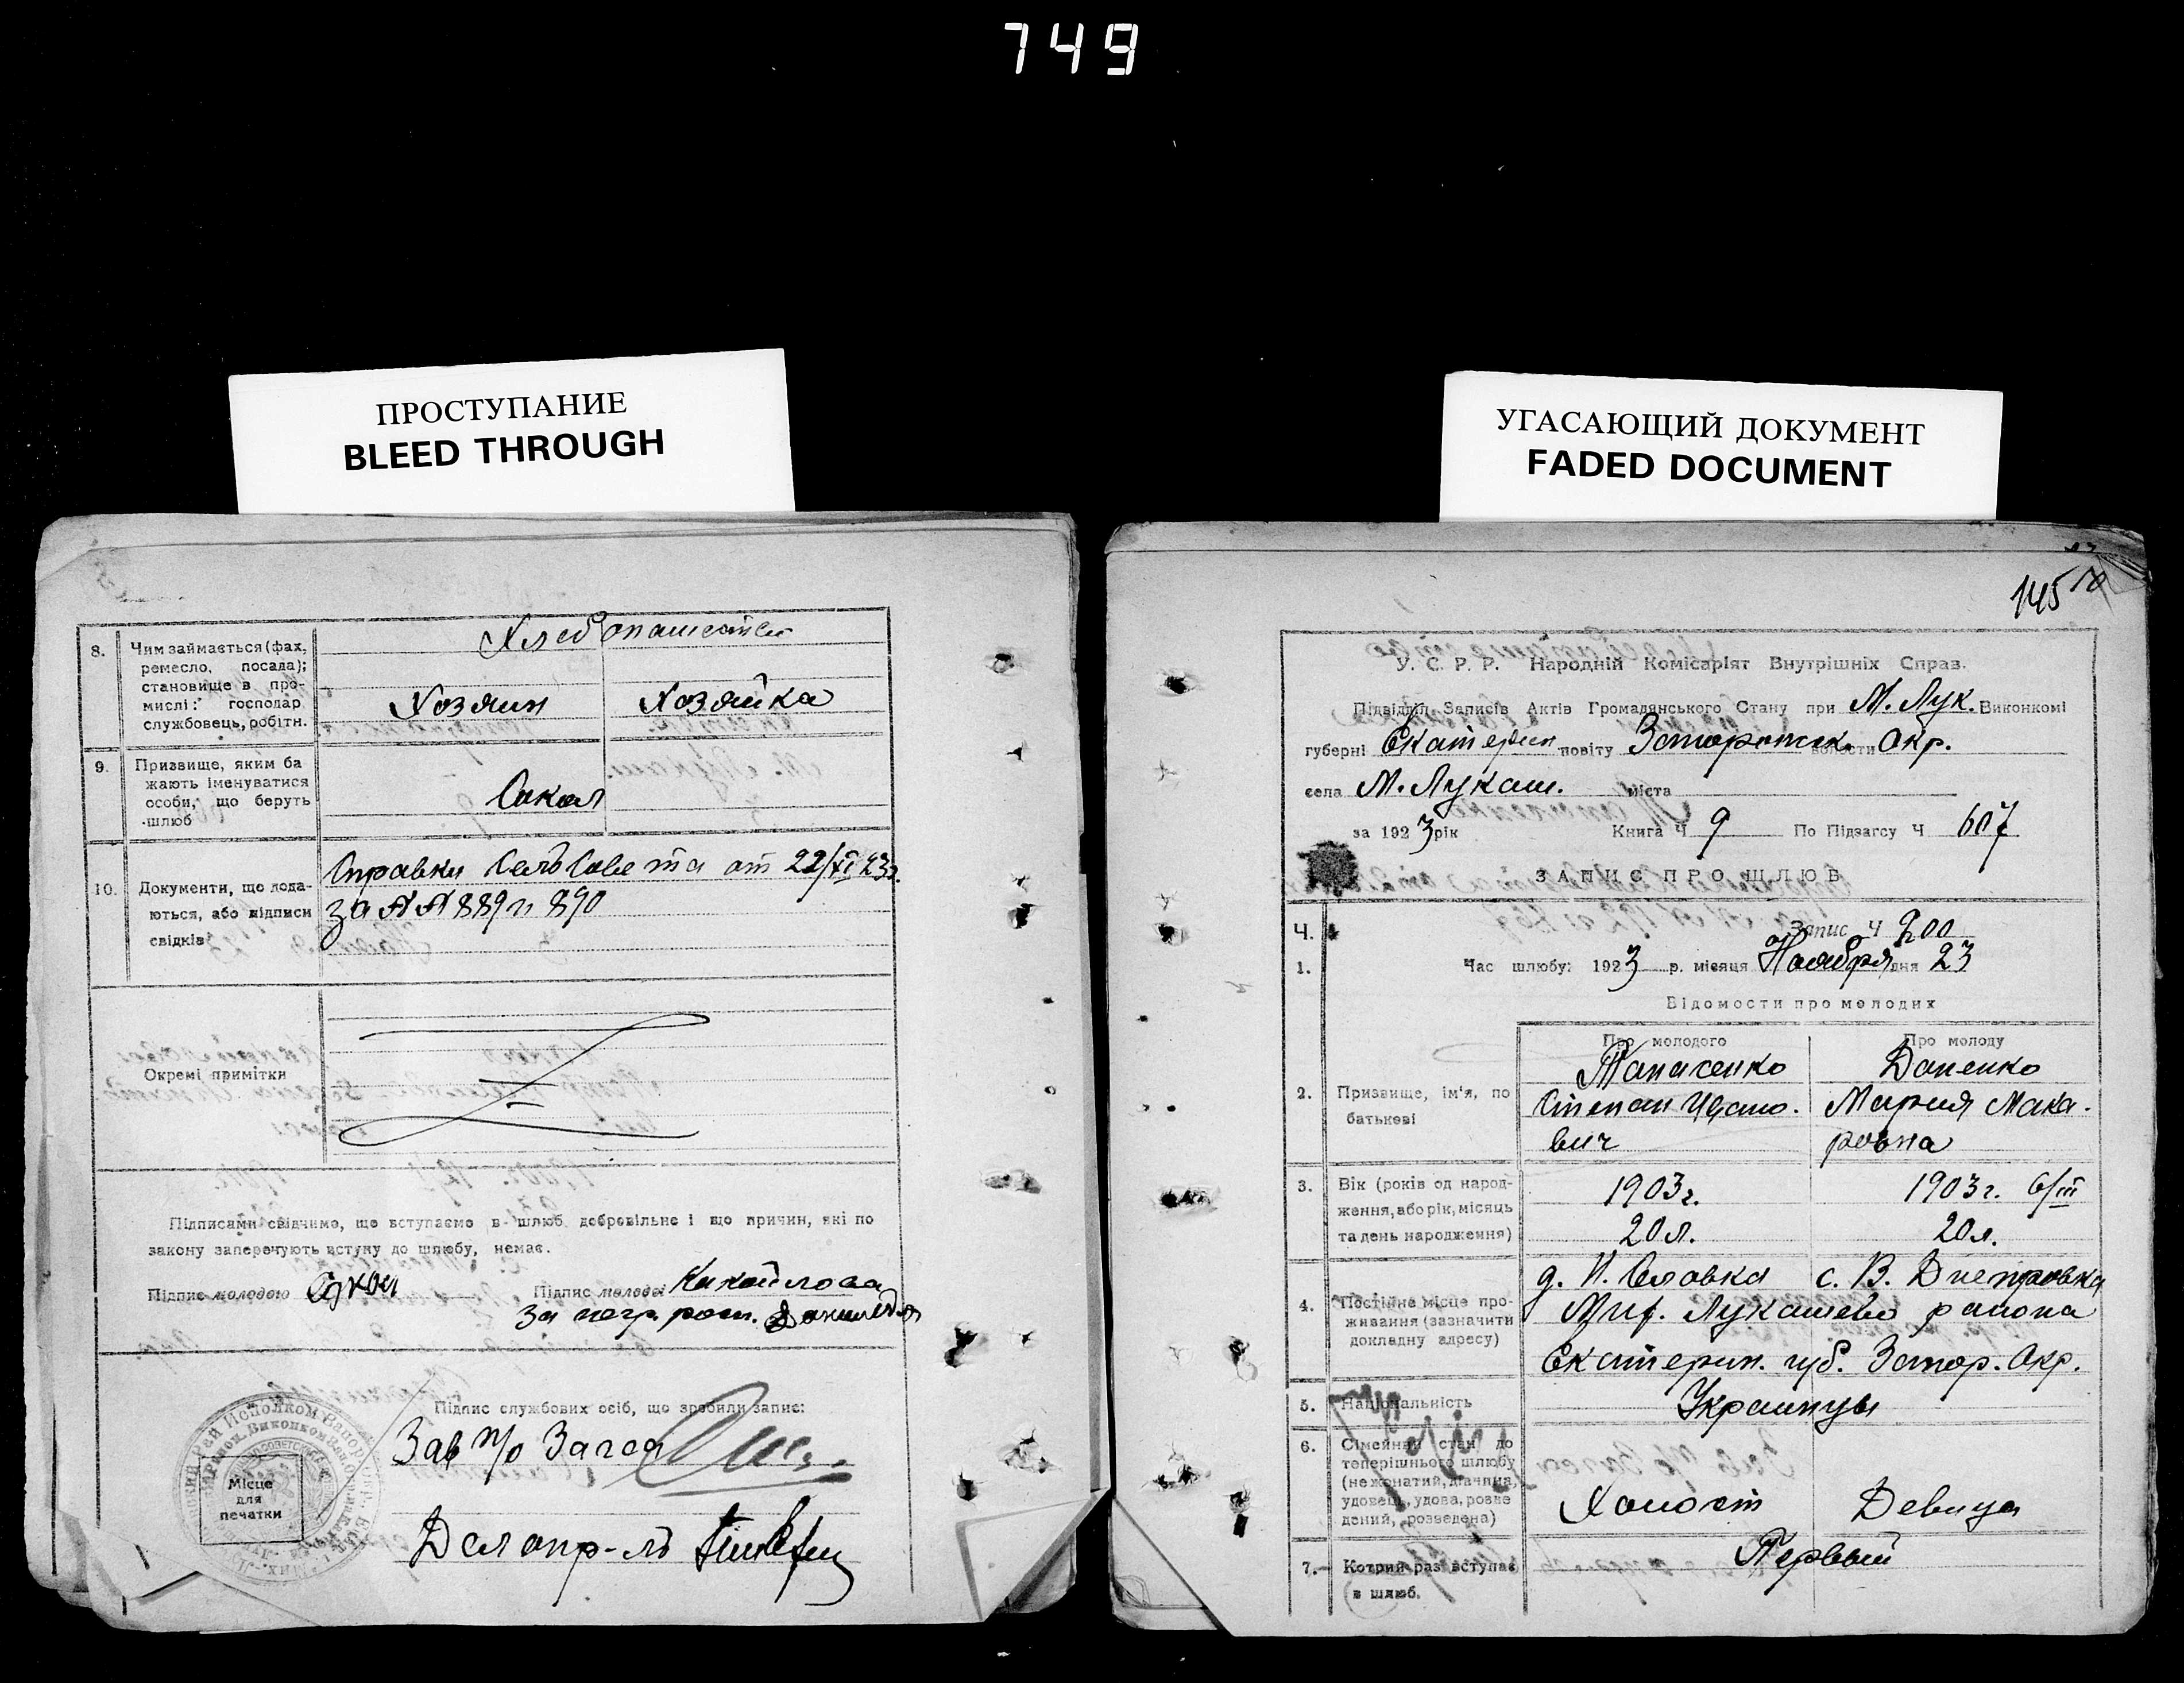 749
ПРОСТУПАНИЕ
BLEED THROUGH
УГАСАЮЩИЙ ДОКУМЕНТ
FADED DOCUMENT
8. Чим займається (фах, ремесло, посада); становище в про-мислі: господар службовець, робітн.
Хлебопашество
Хозяин Хозяйка
9. Призвище, яким ба
жають іменуватися
особи, що беруть
шлюб
Сокол
10. Документи, що дода-
ються, або підписи
свідків
Справки СельСовета от 22/XI 23г.
за №№ 889 и 890
Окремі примітки
Підписами свідчимо, що вступаємо в шлюб добровільно і що причин, які по
закону заперечують вступу до шлюбу, немає.
Підпис молодого Підпис молодої
за негр рос.
Підпис службових осіб, що зробили запис:
Зав п/о Загса
Місце
для
печатки
Делопр-ль
145
У. С. Р. Р. Народній Комісаріят Внутрішніх Справ.
Підвідділ Записів Актів Громадянського Стану при М. Лук. Виконкомі
губерні Екатерин повіту Запорожск. волости Окр.
села М. Лукаш. міста
за 1923 рік Книга Ч 9 По Підзагсу Ч 607
ЗАПИС ПРО ШЛЮБ
Ч. Запис Ч 200
1. Час шлюбу: 1923 р. місяця Ноября дня 23
Відомости про молодих
Про молодого Про молоду
2. Призвище, ім'я, по
батькові
Степан Ивано-
вич
Мария Мака-
ровна
3. Вік (років од народ-
ження, або рік, місяць
та день народження)
1903г. 1903г. 6/III
20 л. 20 л.
4. Постійне місце про-
живання (зазначити
докладну адресу)
с. В. Днепровка
Лукашево района
Екатерин. губ. Запор. Окр.
5. Національність
Украинцы
6. Сімейний стан до
теперішнього шлюбу
(нежонатий, дівчина,
удовець, удова, розве
дений, розведена)
Холост Девица
7. Котрий раз вступає
в шлюб.
Первый